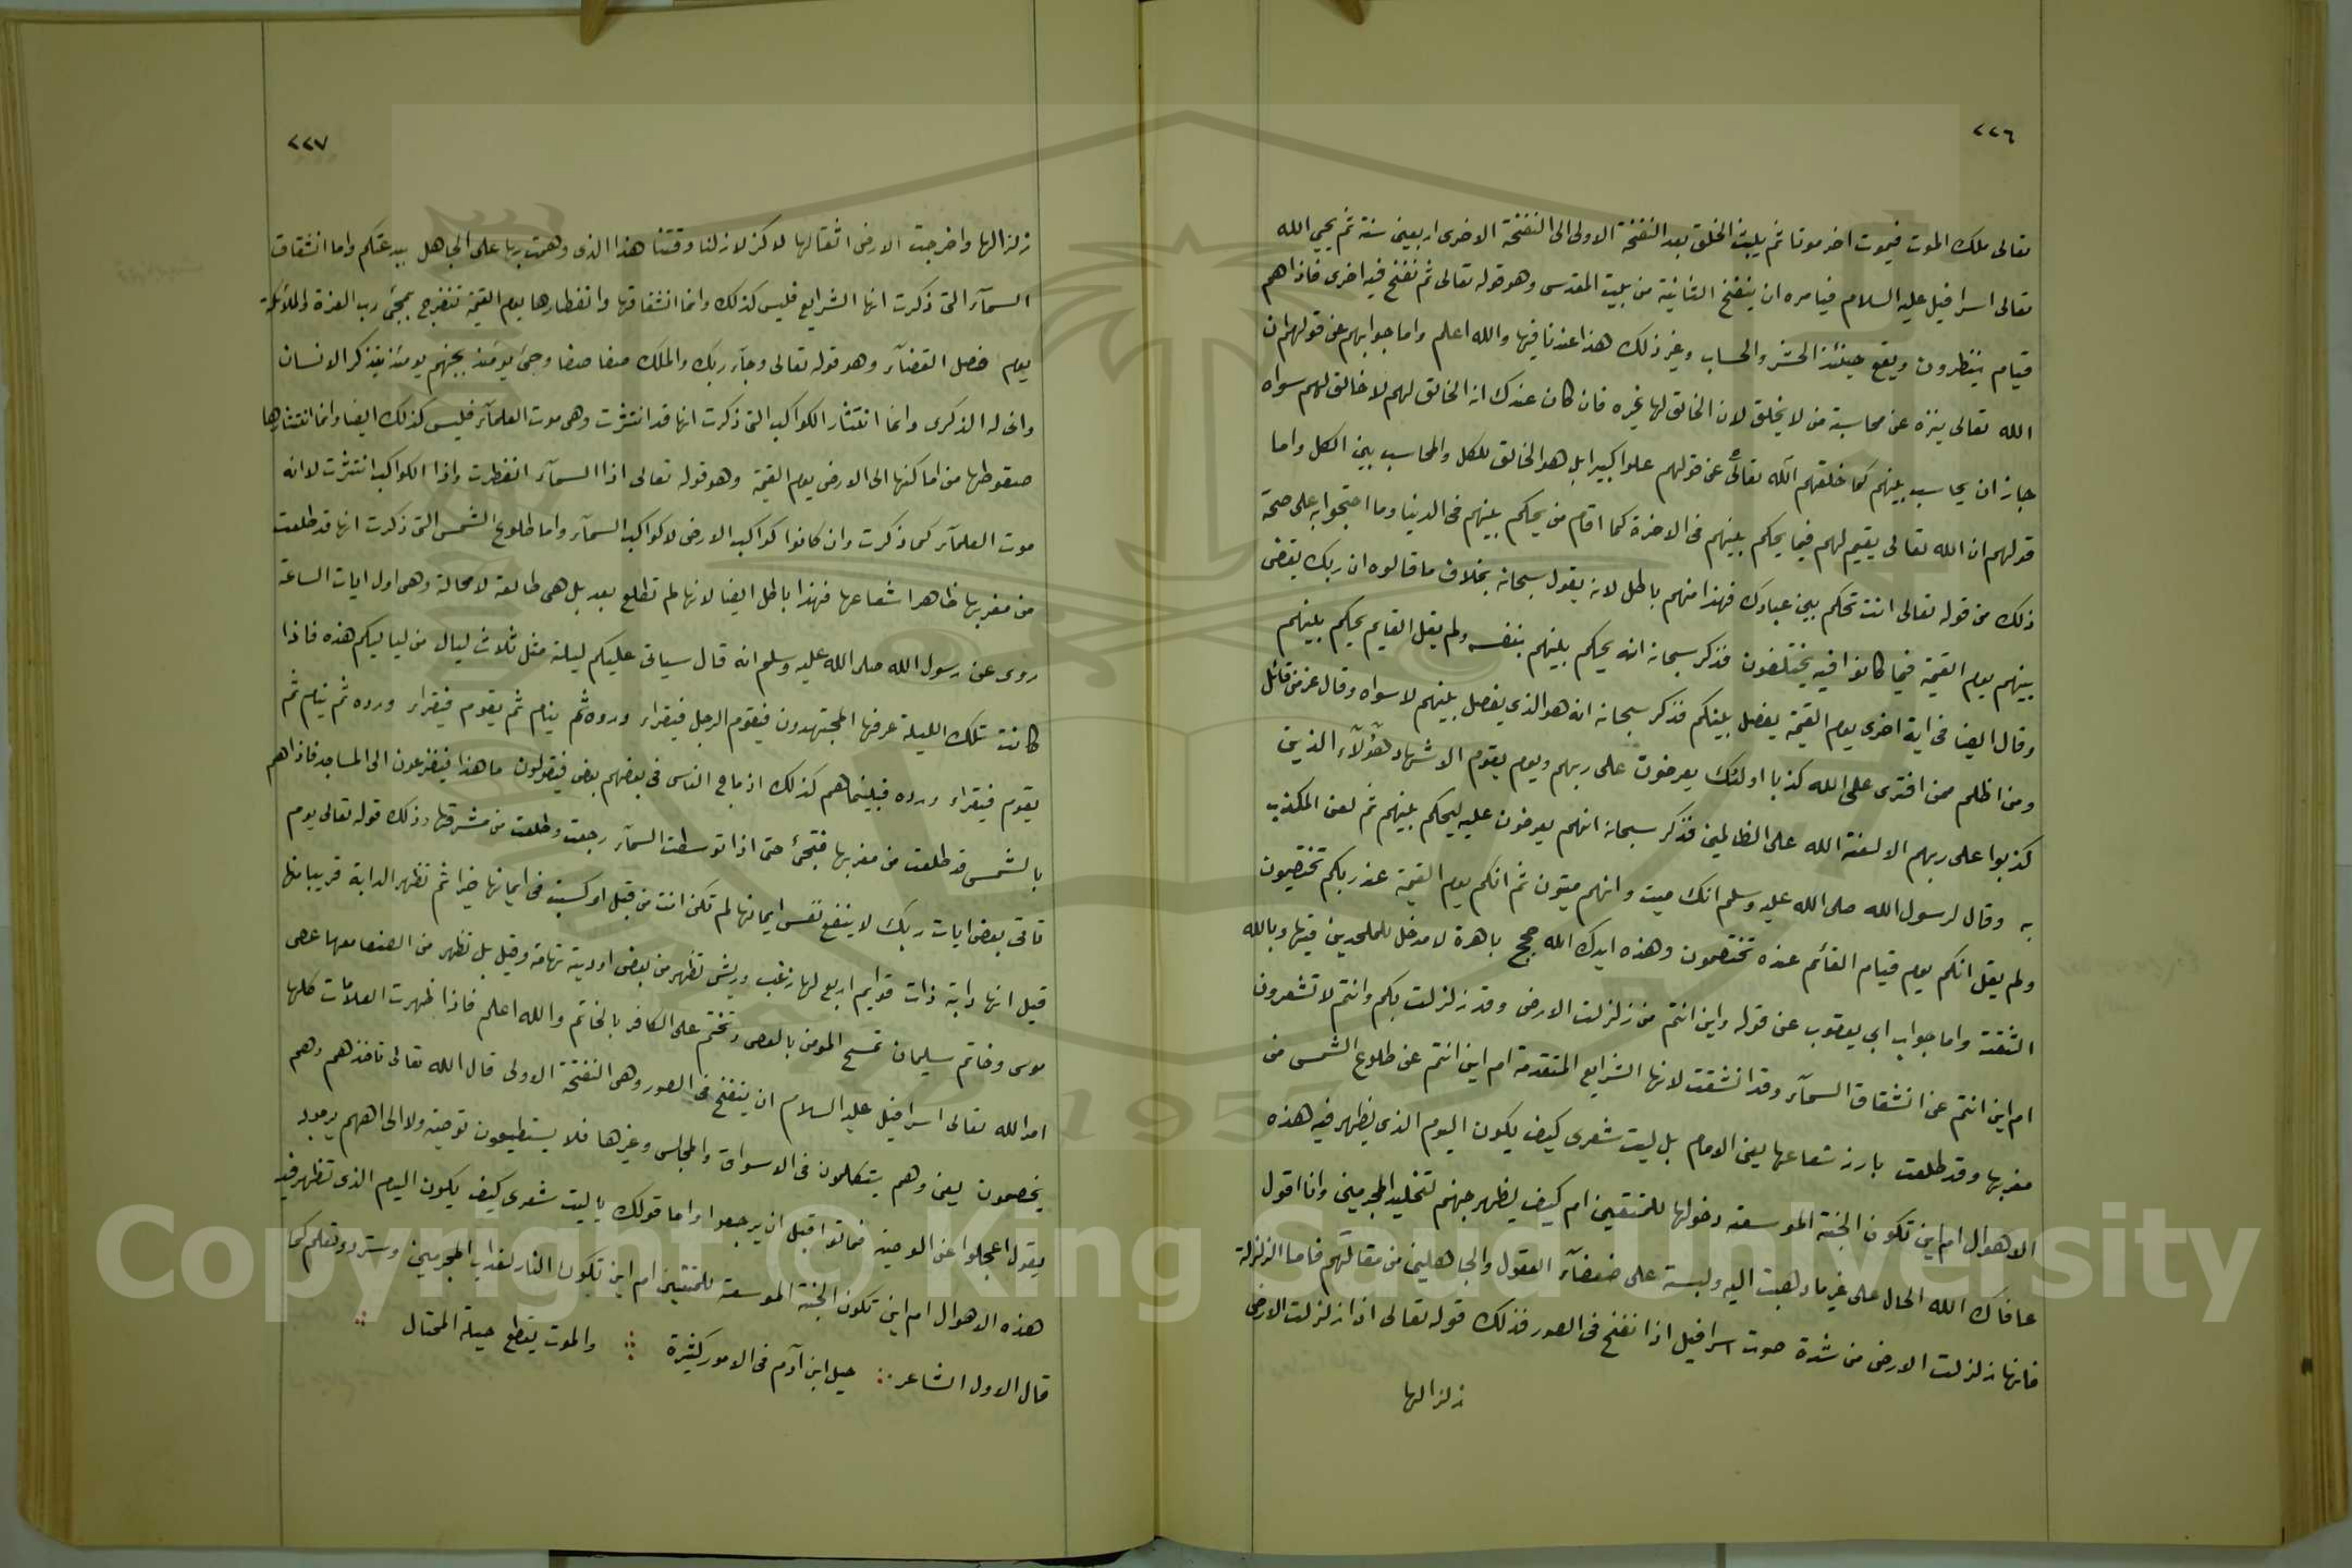 ٢٢٦
تعالى ملك الموت فيموت اخر موتا ثم يلبث الخلق بعد النفخة الاولى الى النفخة الاخرى اربعين سنة ثم يحي الله
تعالى اسرافيل عليه السلام فيامره ان ينفخ الثانية من بليت المقدس وهو قوله تعالى ثم نفخ فيه اخرى فاذاهم
قيام ينظرون ويقع حينئذ الحشر والحساب وغير ذلك هذا عندنا فيها والله اعلم واما جوابهم عن قولهم ان
الله تعالى ينزه عن محاسبة من لا يخلق لان الخالق لها غيره فان كان عندك ان الخالق لهم لا خالق لهم سواه
جاز ان يحاسب بينهم كما خلقهم الله تعالى عن قولهم علوا كبيرا بل هو الخالق للكل والمحاسب بين الكل واما
قولهم ان الله تعالى يقيم لهم فيما يحكم بينهم فى الاخرة كما اقام من يحكم بينهم فى الدينا وما احتجوا به على صحة
ذلك من قوله تعالى انت تحكم بين عبادك فهذا منهم باطل لانه يقول سبحانه بخلاف ما قالوه ان ربك يقضى
بينهم يوم القيمة فيما كانوا فيه يختلفون فذكر سبحانه انه يحكم بينهم بنفسه ولم يقل القايم يحكم بينهم
وقال ايضا فى اية اخرى يوم القيمة يفصل بينكم فذكر سبحانه انه هو الذى يفصل بينهم لا سواه وقال عز من قائل
ومن اظلم ممن افترى على الله كذبا اولئك يعرضون على ربهم ويوم يقوم الاشهاد هؤلآء الذين
كذبوا على ربهم الا لعنة الله على الظالمين فذكر سبحانه انهم يعرضون عليه ليحكم بينهم ثم لعن المكذب
به وقال لرسول الله صلى الله عليه وسلم انك ميت وانهم ميتون ثم انكم يوم القيمة عند ربكم تختصمون
ولم يقل انكم يوم قيام القآئم عنده تختصمون وهذه ايدك الله حجج باهرة لا مدخل للملحدين فيها وبالله
الثقة واما جواب ابى يعقوب عن قوله واين انتم من زلزلت الارض وقد زلزلت بكم وانتم لا تشعرون
ام اين انتم عن انشقاق السمآء وقد انشقت لانها الشرايع المتقدمة ام اين انتم عن طلوع الشمس من
مغربها وقد طلعت بارز شعاعها يعنى الامام بل ليت شعرى كيف يكون اليوم الذى يظهر فيه هذه
الاهوال ام اين تكون الجنة الموسعة دخولها للمتقين ام كيف يظهر جهنم لتخليد المجرمين وانا اقول
عافاك الله الحال على غير ما ذهبت اليه ولبسته على ضعفآء العقول والجاهلين من مقالتهم فاما الزلزلة
فانها زلزلت الارض من شدة صوت اسرافيل اذا نفخ فى الصور فذلك قوله تعالى اذا زلزلت الارض
زلزالها
٢٢٧
زلزالها واخرجت الارض اثقالها لا كزلازلنا وقتنا هذا الذى وهمت بها على الجاهل ببدعتكم واما انشقاق
السمآء التى ذكرت انها الشرايع فليس كذلك وانما انشقاقها وانفطارها يوم القيمة تنفرج بمجئ رب العزة والملآئكة
يوم فصل القضآء وهو قوله تعالى وجآء ربك والملك صفا صفا وجئ يومئذ بجهنم يومئذ يتذكر الانسان
وانى له الذكرى وانما انتثار الكواكب التى ذكرت انها قد انتثرت وهى موت العلمآء فليس كذلك ايضا وانما انتثارها
صقوطها من اماكنها الى الارض يوم القيمة وهو قوله تعالى اذا السمآء انفطرت واذا الكواكب انتثرت لا انه
موت العلمآء كما ذكرت وان كانوا كواكب الارض لا كواكب السمآء واما طلوع الشمس التى ذكرت انها قد طلعت
من مغربها ظاهرا شعاعها فهذا باطل ايضا لانها لم تطلع بعد بل هى طالعة لا محالة وهى اول ايات الساعة
روى عن رسول الله صلى الله عليه وسلم انه قال سياتى عليكم ليلة مثل ثلاث ليال من لياليكم هذه فاذا
كانت تلك الليلة عرفها المجتهدون فيقوم الرجل فيقراء وروده ثم ينام ثم يقوم فيقراء وروده ثم ينام ثم
يقوم فيقراء وروده فبينماهم كذلك اذ ماج الناس فى بعضهم بعض فيقولون ما هذا فيفزعون الى المساجد فاذاهم
بالشمس قد طلعت من مغربها فتجئ حتى اذا توسطت السمآء رجعت وطلعت من مشرقها وذلك قوله تعالى يوم
تاتى بعض ايات ربك لا ينفع نفس ايمانها لم تكن امنت من قبل او كسبت فى ايمانها خيرا ثم تظهر الدابة قريبا منها
قيل انها دابة ذات قوايم اربع لها زغب وريش تظهر من بعض اودية تهامة وقيل بل تظهر من الصفا معها عصى
موسى وخاتم سليمان تمسح المومن بالعصى وتختم على الكافر بالخاتم والله اعلم فاذا ظهرت العلامات كلها
امر الله تعالى اسرافيل عليه السلام ان ينفخ فى الصور وهى النفخة الاولى قال الله تعالى تاخذهم وهم
يخصمون يعنى وهم يتكلمون فى الاسواق والمجالس وغيرها فلا يستطيعون توصية ولا الى اهلهم يرجعون
يقول اعجلوا عن الوصية فماتوا قبل ان يرجعوا واما قولك ياليت شعرى كيف يكون اليوم الذى تظهر فيه
هذه الاهوال ام اين تكون الجنة الموسعة للمتقين ام اين تكون النار لعذاب المجرمين وسترد وتعلم كما
قال الاول الشاعر حيل ابن آدم فى الامور كثيرة والموت يقطع حيلة المحتال
Copyright © King Saud University
195